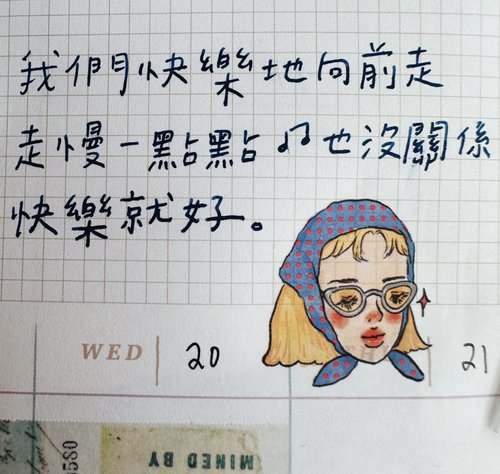 我們快樂地向前走
走慢一點點♫也沒關係
快樂就好。
WED 20 21
0580
MINED BY